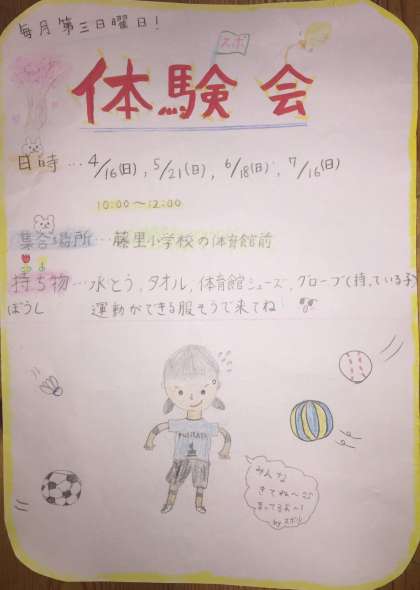 毎月第三日曜日!
スポ
体験会
日時…4/16(日)、5/21(日)、6/18(日)、7/16(日)
10:00〜12:00
集合場所…藤里小学校の体育館前
持ち物…水とう、タオル、体育館シューズ、グローブ(持っている子)
ぼうし 運動ができる服そうで来てね!
FUJISATO
みんな
きてね〜♫
まってるよ〜!
by スポ少